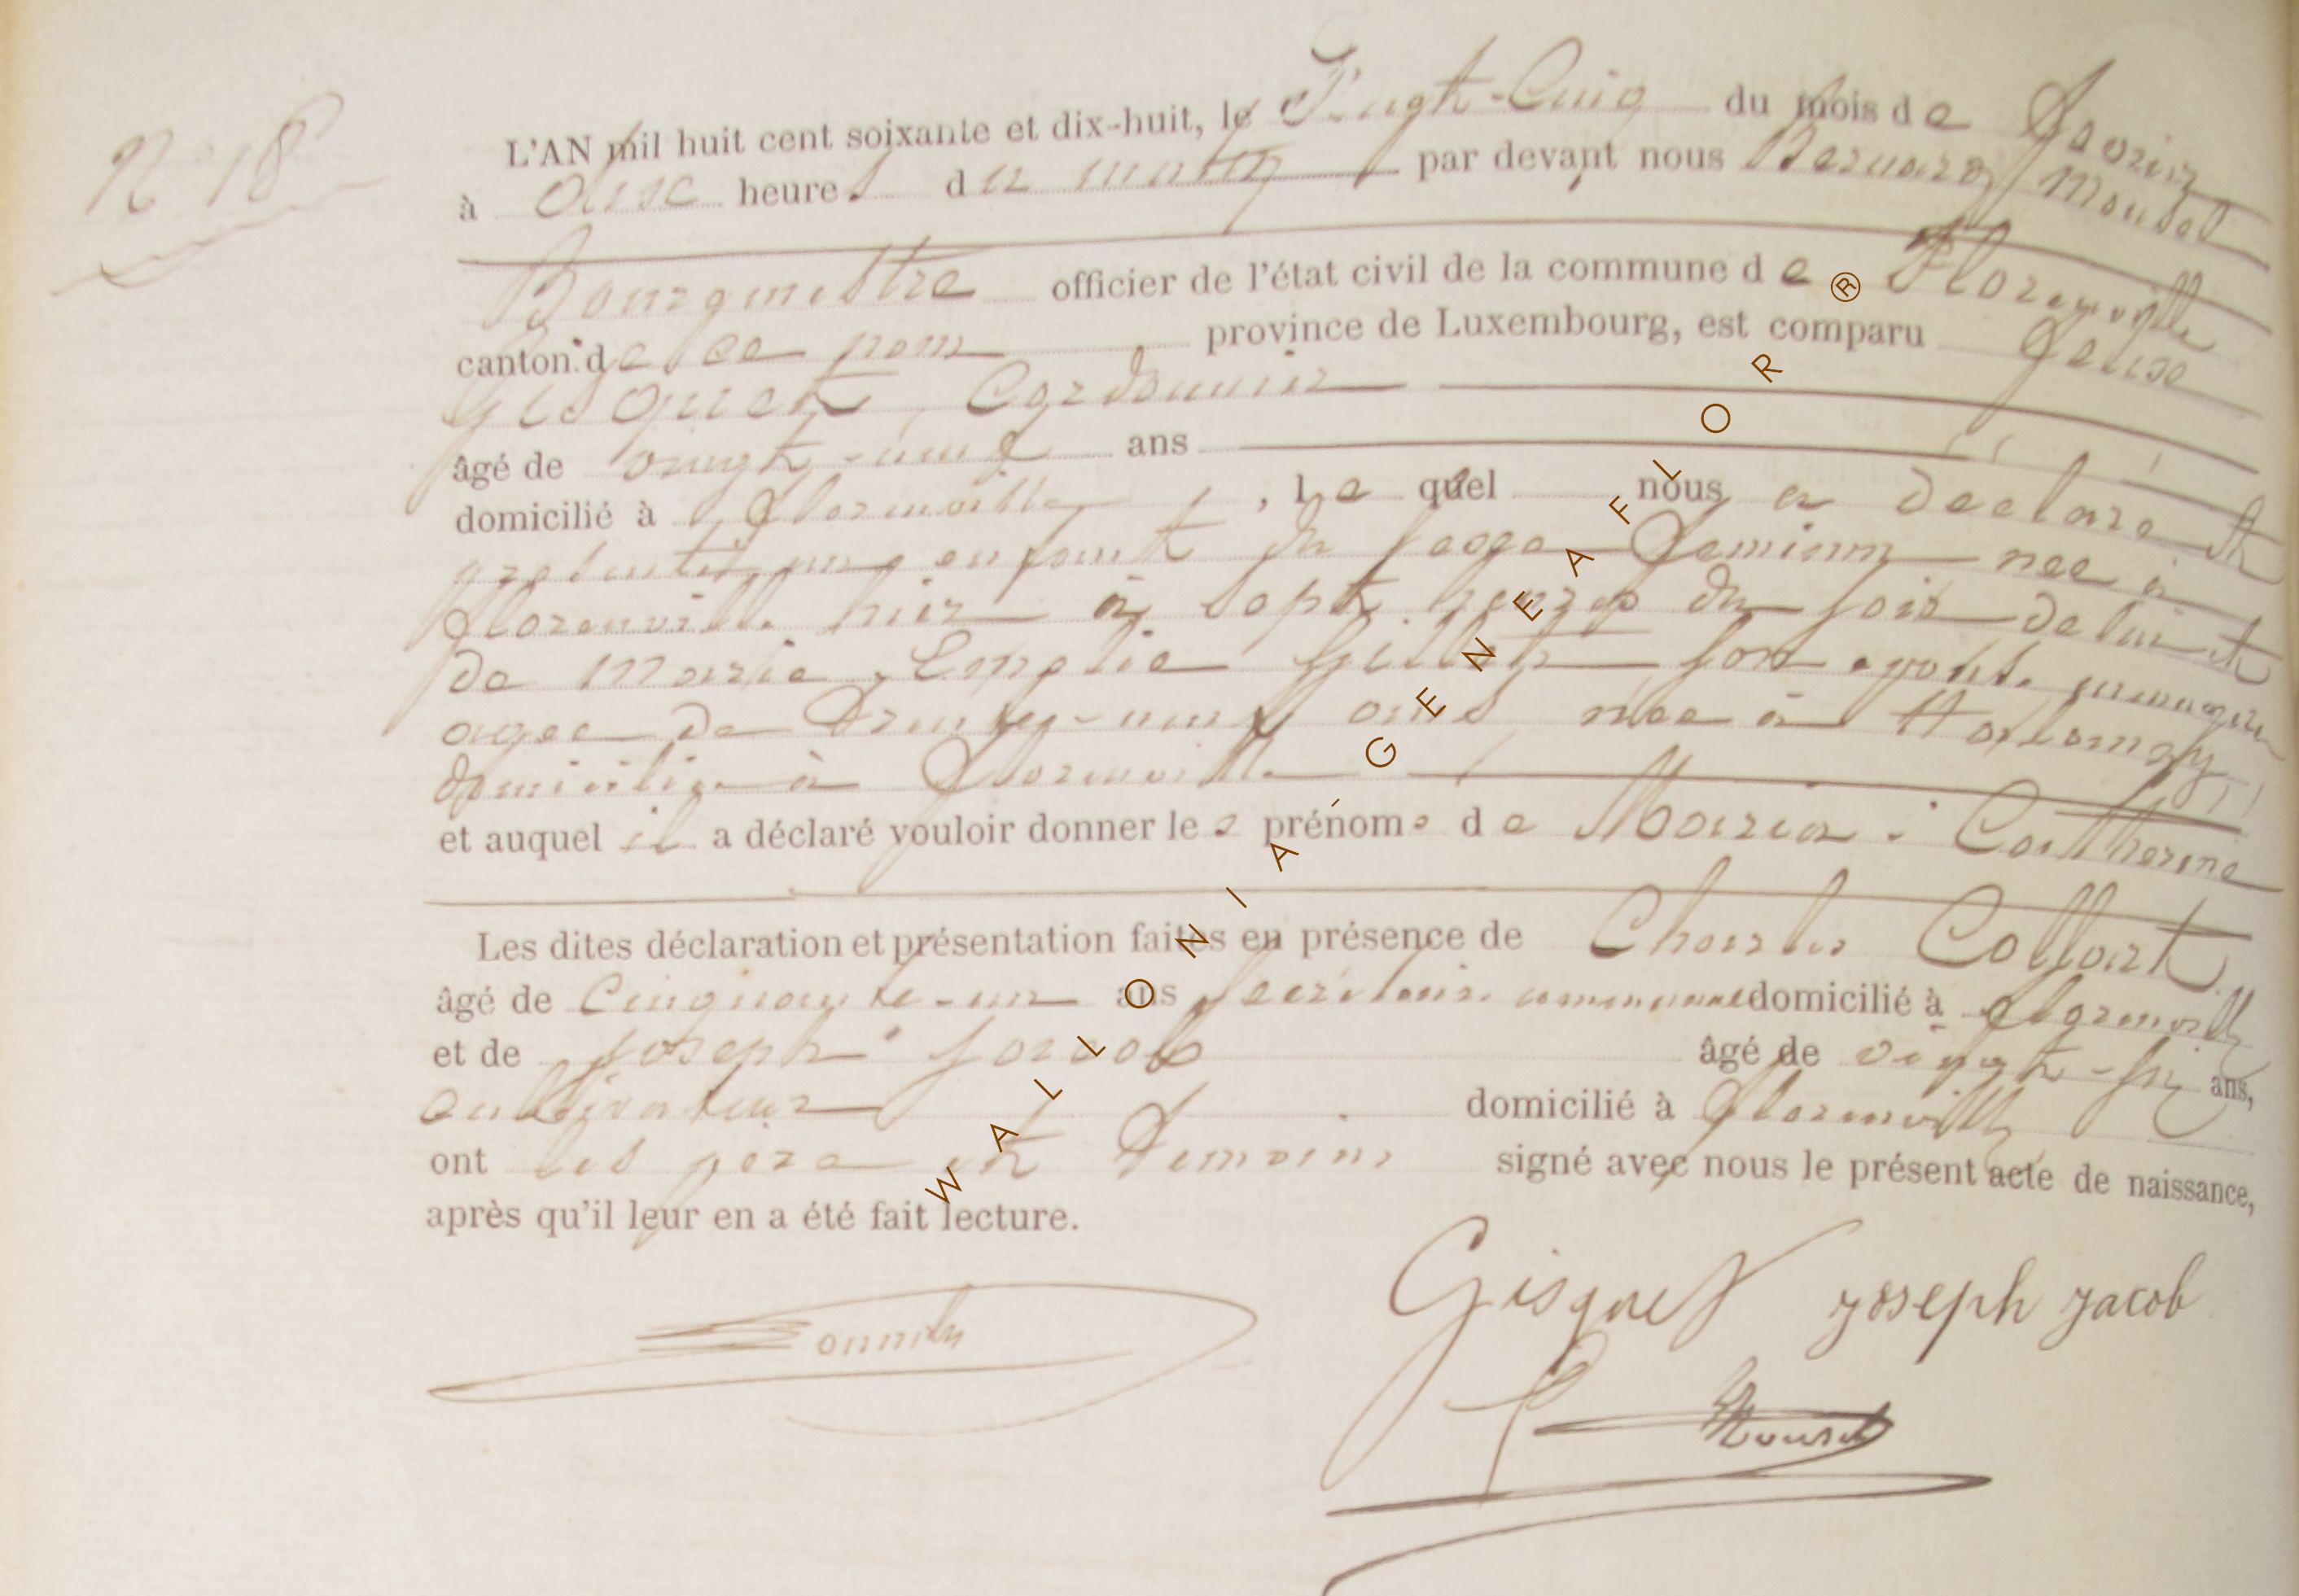 N° 18
L'AN mil huit cent soixante et dix-huit, le Vingt-Cinq du mois de Février
à onse heures du matin par devant nous Bernard Mousel
Bourgmestre officier de l'état civil de la commune de Florenville
canton de ce nom province de Luxembourg, est comparu
Gisquet, Cordonnier
âgé de vingt-neuf ans
domicilié à Florenville, lequel nous a déclaré et
présenté une enfant du sexe féminin née à
Florenville hier à sept heures du soir de lui et
de Marie son épouse ménagère
agée de ans née à
domiciliée à Florenville
et auquel il a déclaré vouloir donner les prénoms de Maria Catherine
Les dites déclaration et présentation faites en présence de Charles Collart
âgé de Cinquante-un ans, secrétaire communal domicilié à Florenville
et de Joseph Jacob âgé de vingt-six ans,
cultivateur domicilié à Florenville
ont les père et témoins signé avec nous le présent acte de naissance,
après qu'il leur en a été fait lecture.
Gisquet Joseph Jacob
Mousel
WALLONIA GENEAFLOR ®